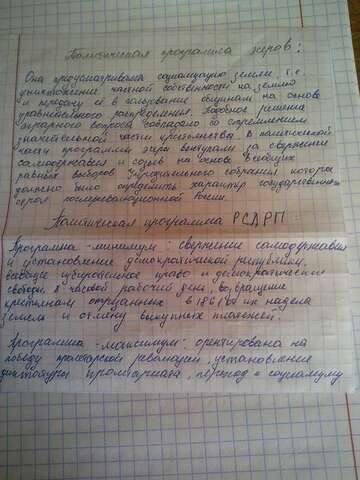 Политическая программа эсеров:
Она предусматривала социализацию земли, т.е.
уничтожение частной собственности на землю
и передачу её в пользование общинам на основе
уравнительного распределения. Подобное решение
аграрного вопроса совпадало со стремлением
значительной части крестьянства. В политической
части программы эсеры выступали за свержение
самодержавия и созыв на основе всеобщих
равных выборов Учредительного собрания, которое
должно было определить характер государственного
строя послереволюционной России.
Политическая программа РСДРП:
Программа-минимум: свержение самодержавия
и установление демократической республики,
всеобщее избирательное право и демократические
свободы, 8 часовой рабочий день, возвращение
крестьянам отрезанных в 1861 от их надела
земель и отмену выкупных платежей.
Программа-максимум: ориентирована на
победу пролетарской революции, установление
диктатуры пролетариата, переход к социализму